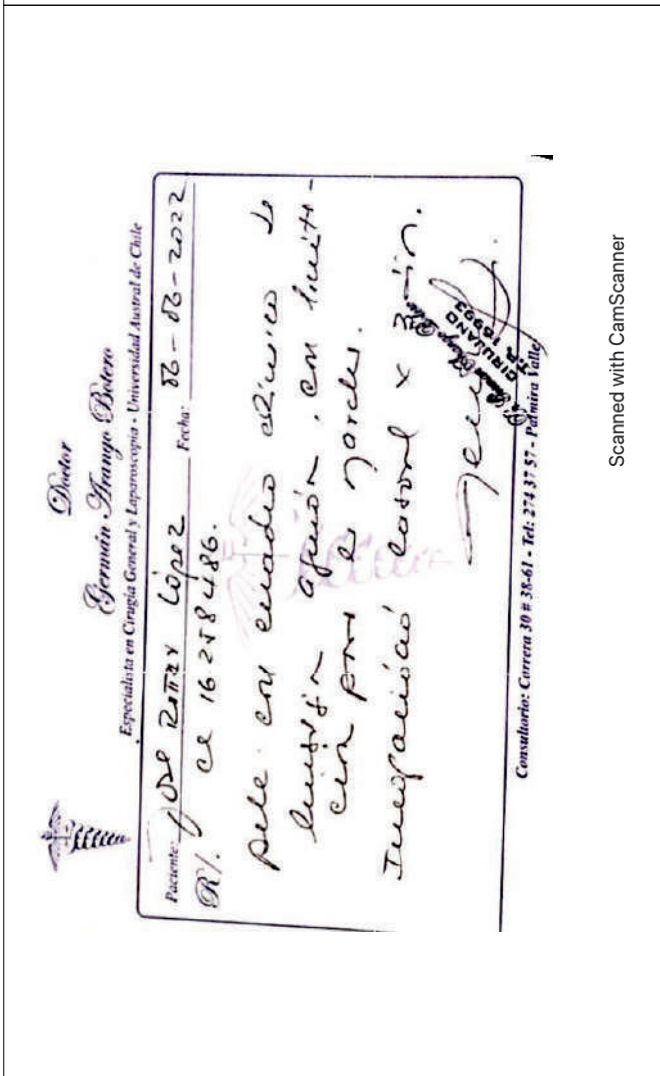 Doctor
Germán Arango Botero
Especialista en Cirugía General y Laparoscopia - Universidad Austral de Chile
Paciente: José López Fecha: 06-06-2022
R/. cc 16258486.
con cuadro clínico de
con limita-
ción para la marcha.
Incapacidad laboral x 3
CIRUJANO
T.P. 16993
Consultorio: Carrera 30 # 38-61 - Tel: 274 37 57 - Palmira Valle
Scanned with CamScanner